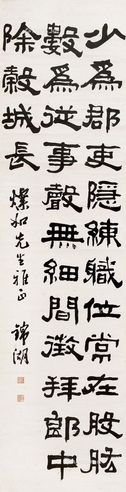 少為郡吏隱練職位常在股肱
數為從事聲無細聞徵拜郎中
除穀城長
燦如先生雅正